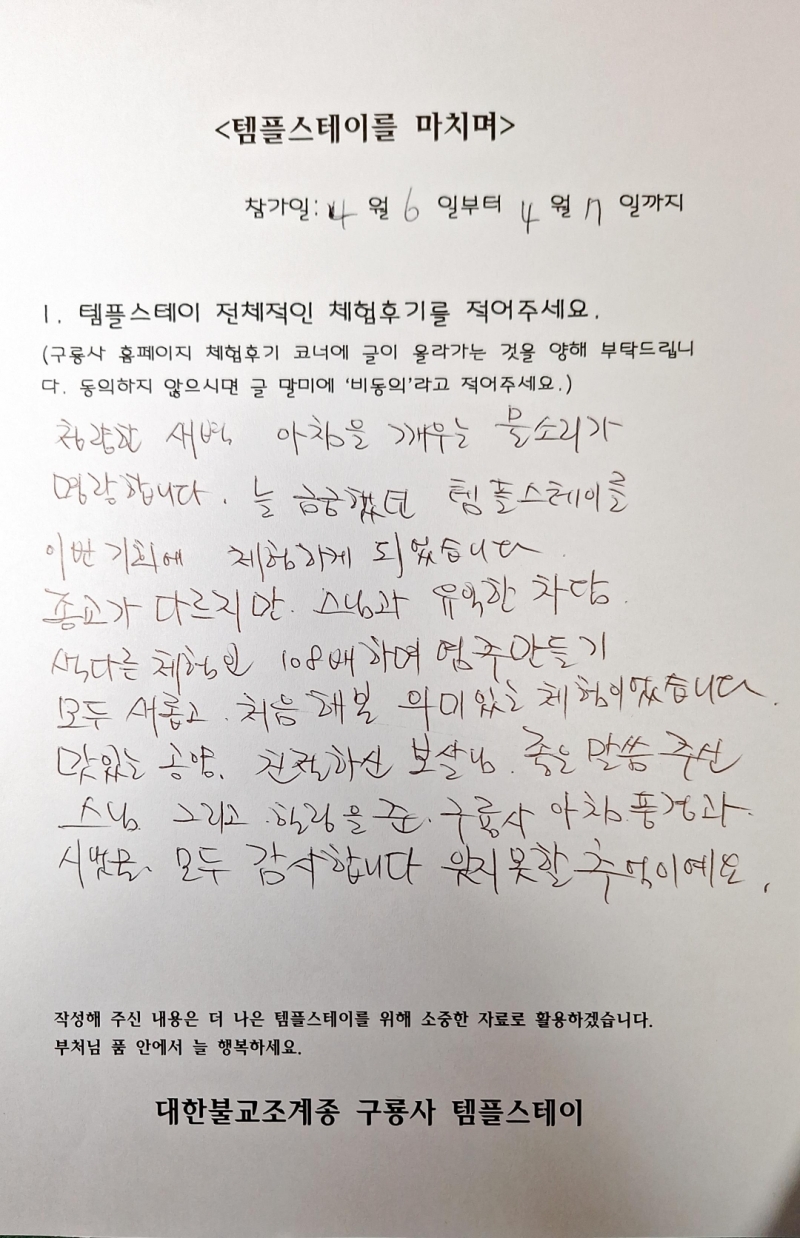 <템플스테이를 마치며>
참가일: 4 월 6 일부터 4 월 7 일까지
1. 템플스테이 전체적인 체험후기를 적어주세요.
(구룡사 홈페이지 체험후기 코너에 글이 올라가는 것을 양해 부탁드립니
다. 동의하지 않으시면 글 말미에 '비동의'라고 적어주세요.)
청량한 새벽 아침을 깨우는 물소리가
명랑합니다. 늘 궁금했던 템플스테이를
이번 기회에 체험하게 되었습니다.
종교가 다르지만. 스님과 유익한 차담.
색다른 체험인 108배하며 염주만들기
모두 새롭고. 처음 해본 의미있는 체험이었습니다.
맛있는 공양. 친절하신 보살님. 좋은 말씀 주신
스님 그리고 힐링을 준. 구룡사 아침.풍경과.
모두 감사합니다 잊지못할 추억이예요.
작성해 주신 내용은 더 나은 템플스테이를 위해 소중한 자료로 활용하겠습니다.
부처님 품 안에서 늘 행복하세요.
대한불교조계종 구룡사 템플스테이